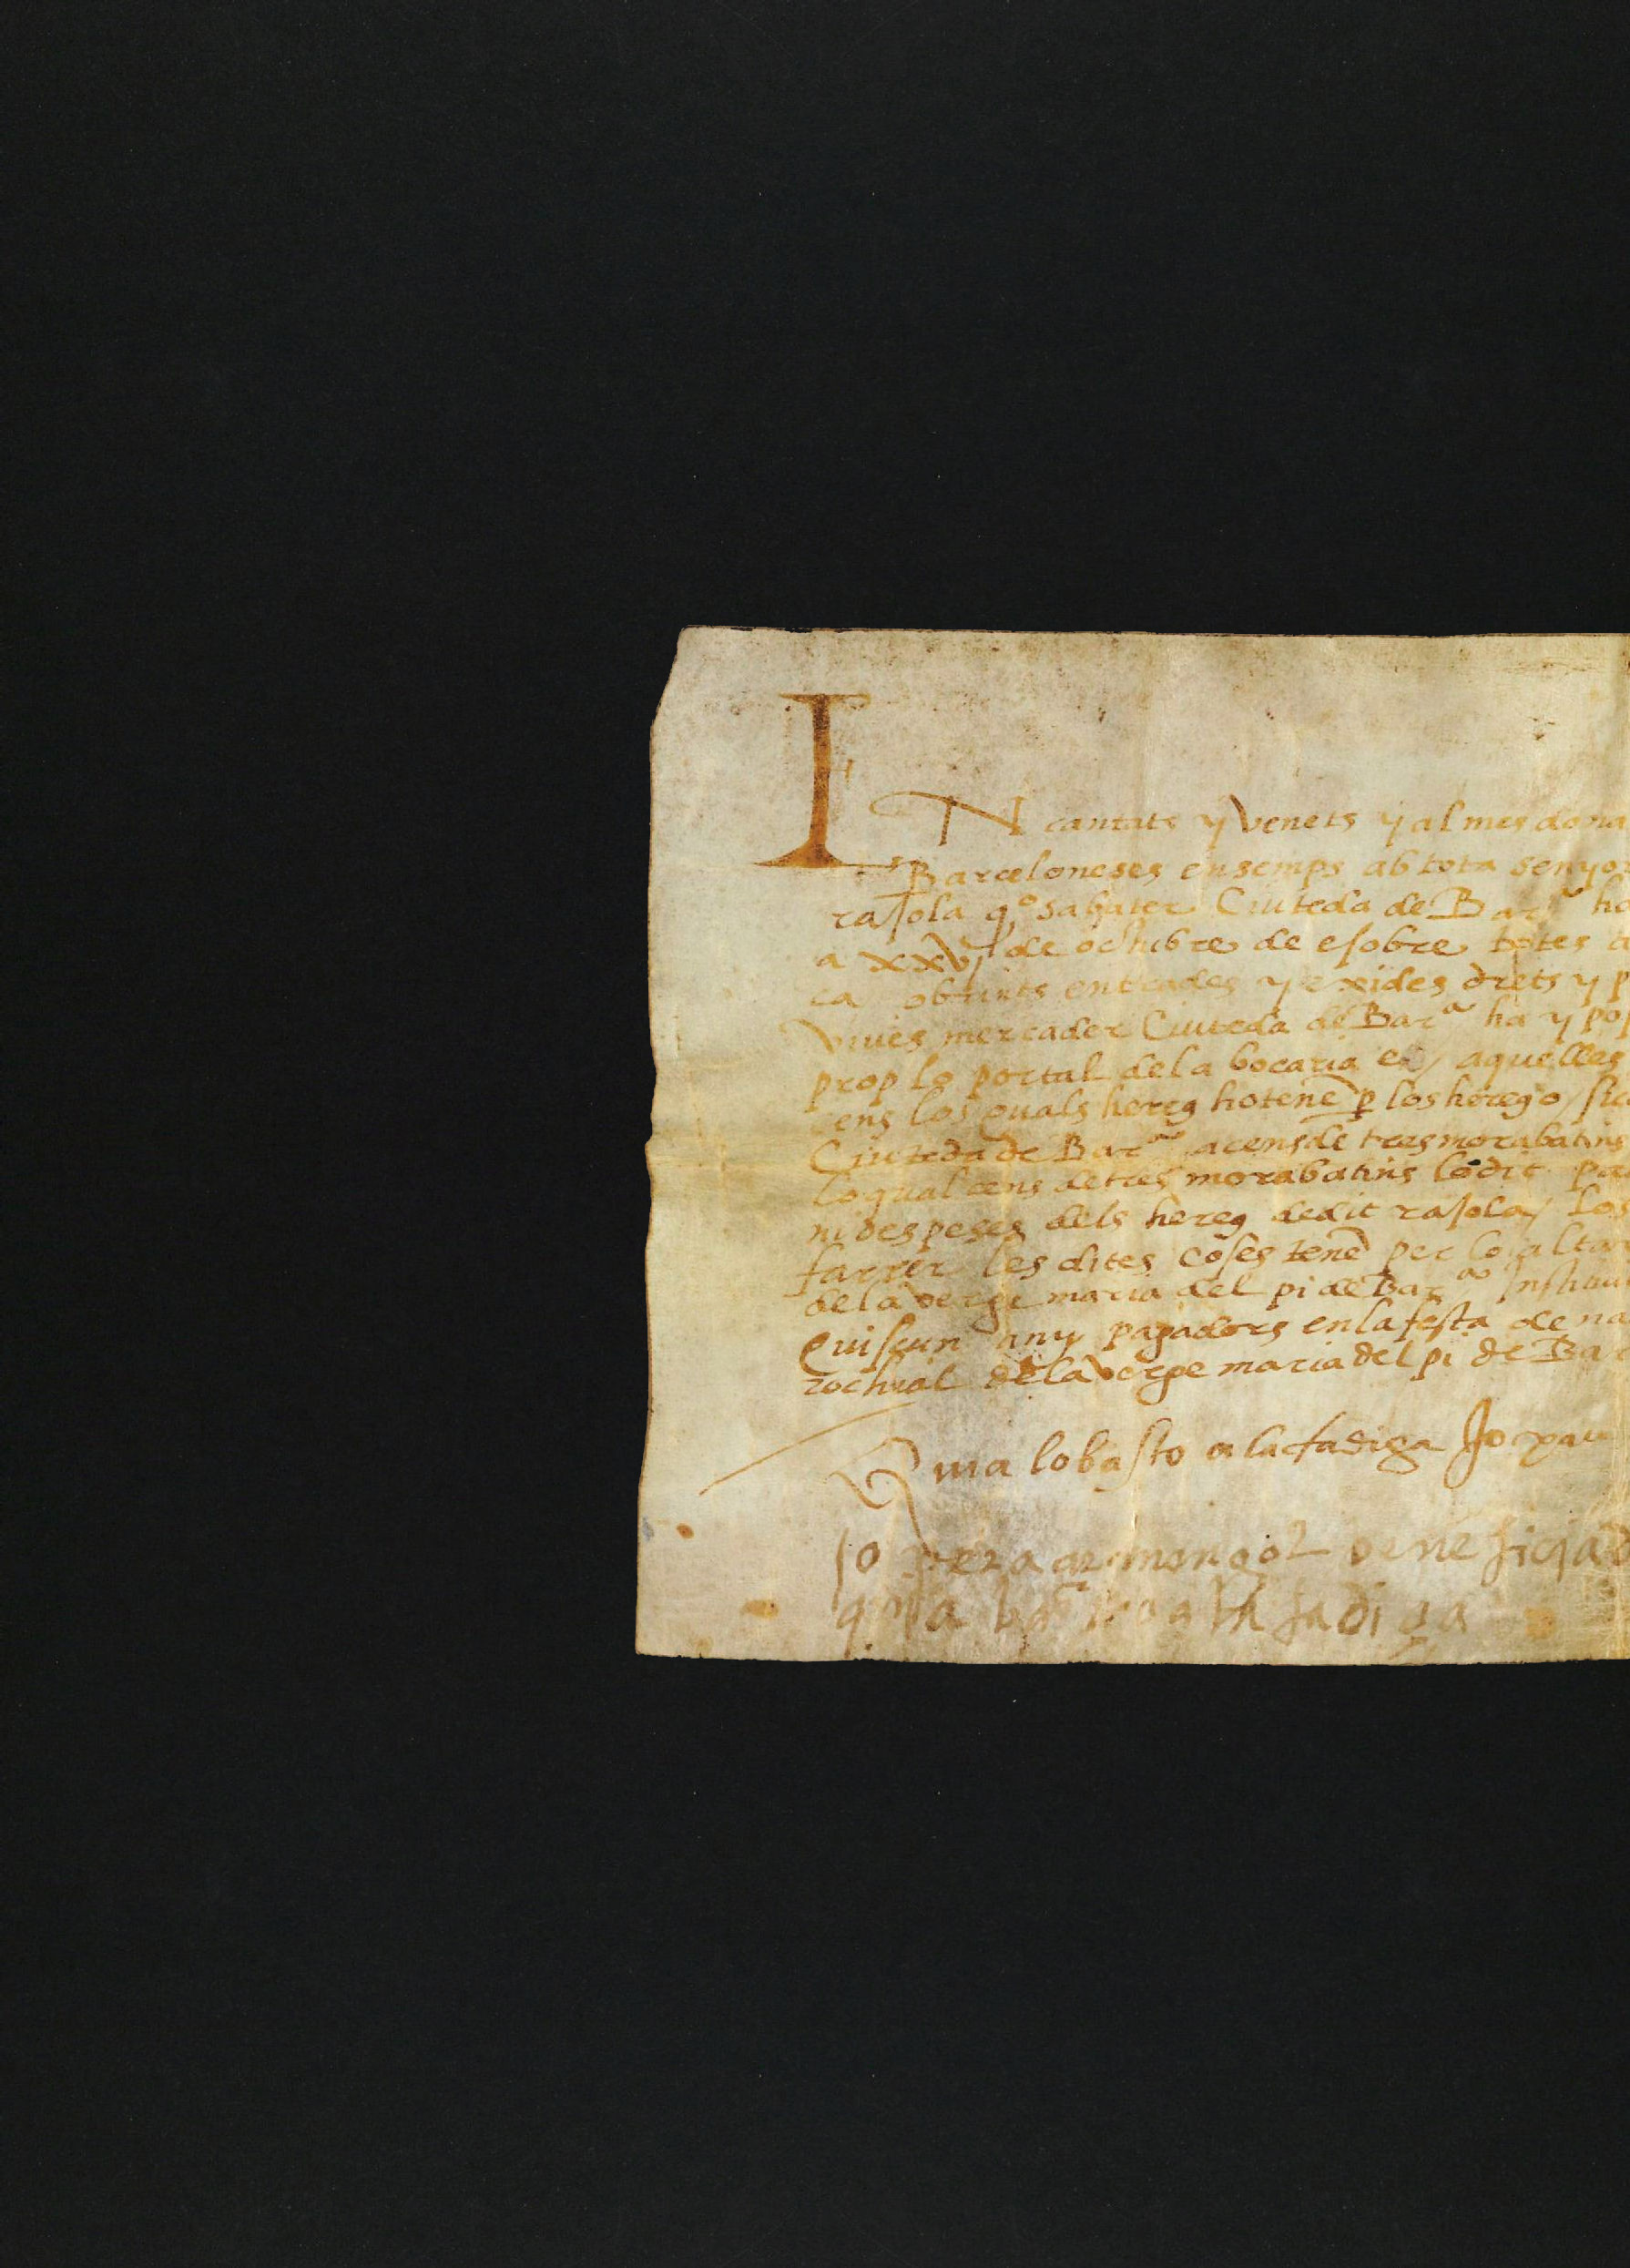 IN cantats y venets y al mes dona
Barceloneses ensemps ab tota senyor
rasola qº sabater Ciuteda de Barª ha
a xxvj de octubre de esobre totes
ca obtints entrades y exides drets y p
viues mercader Ciuteda de Barª ha y pos
prop lo portal de la bocaria e aquelles
cens los quals hereş ho tenē p los hereş o
Ciuteda de Barª a cens de tres morabatins
lo qual cens de tres morabatins lo dit
ni despeses dels hereş de dit rasola / los
farrer les dites coses tenē per lo altar
de la verge maria del pi de Barª Institui
Quiscun any pagadors en la festa de na
rochial de la verge maria del pi de Bar
ma lo basto a la fadiga Jo
Jo pera armengol beneficiad
a la fadiga